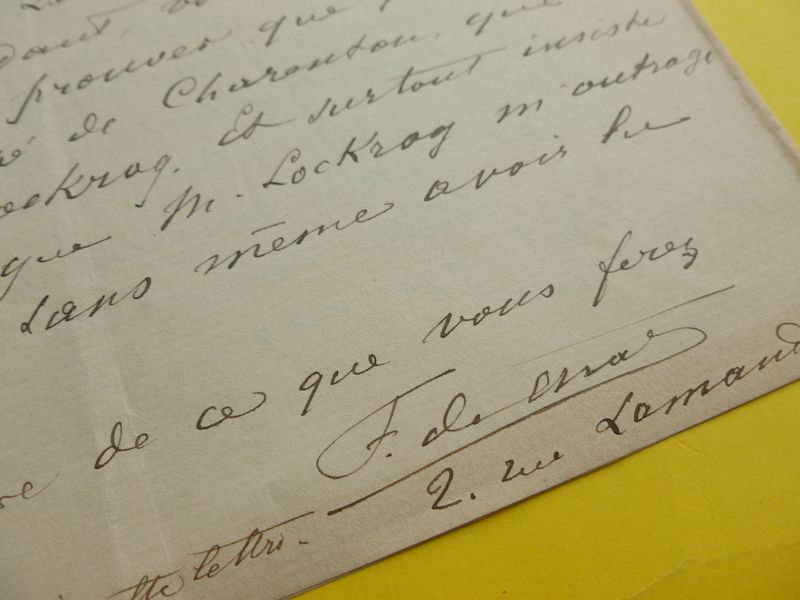 prouver que
de Charenton, que
Lockroy. Et surtout insiste
que M. Lockroy m'outrage
sans même avoir lu
de ce que vous ferez
F. de
2. rue Lamand
lettre.